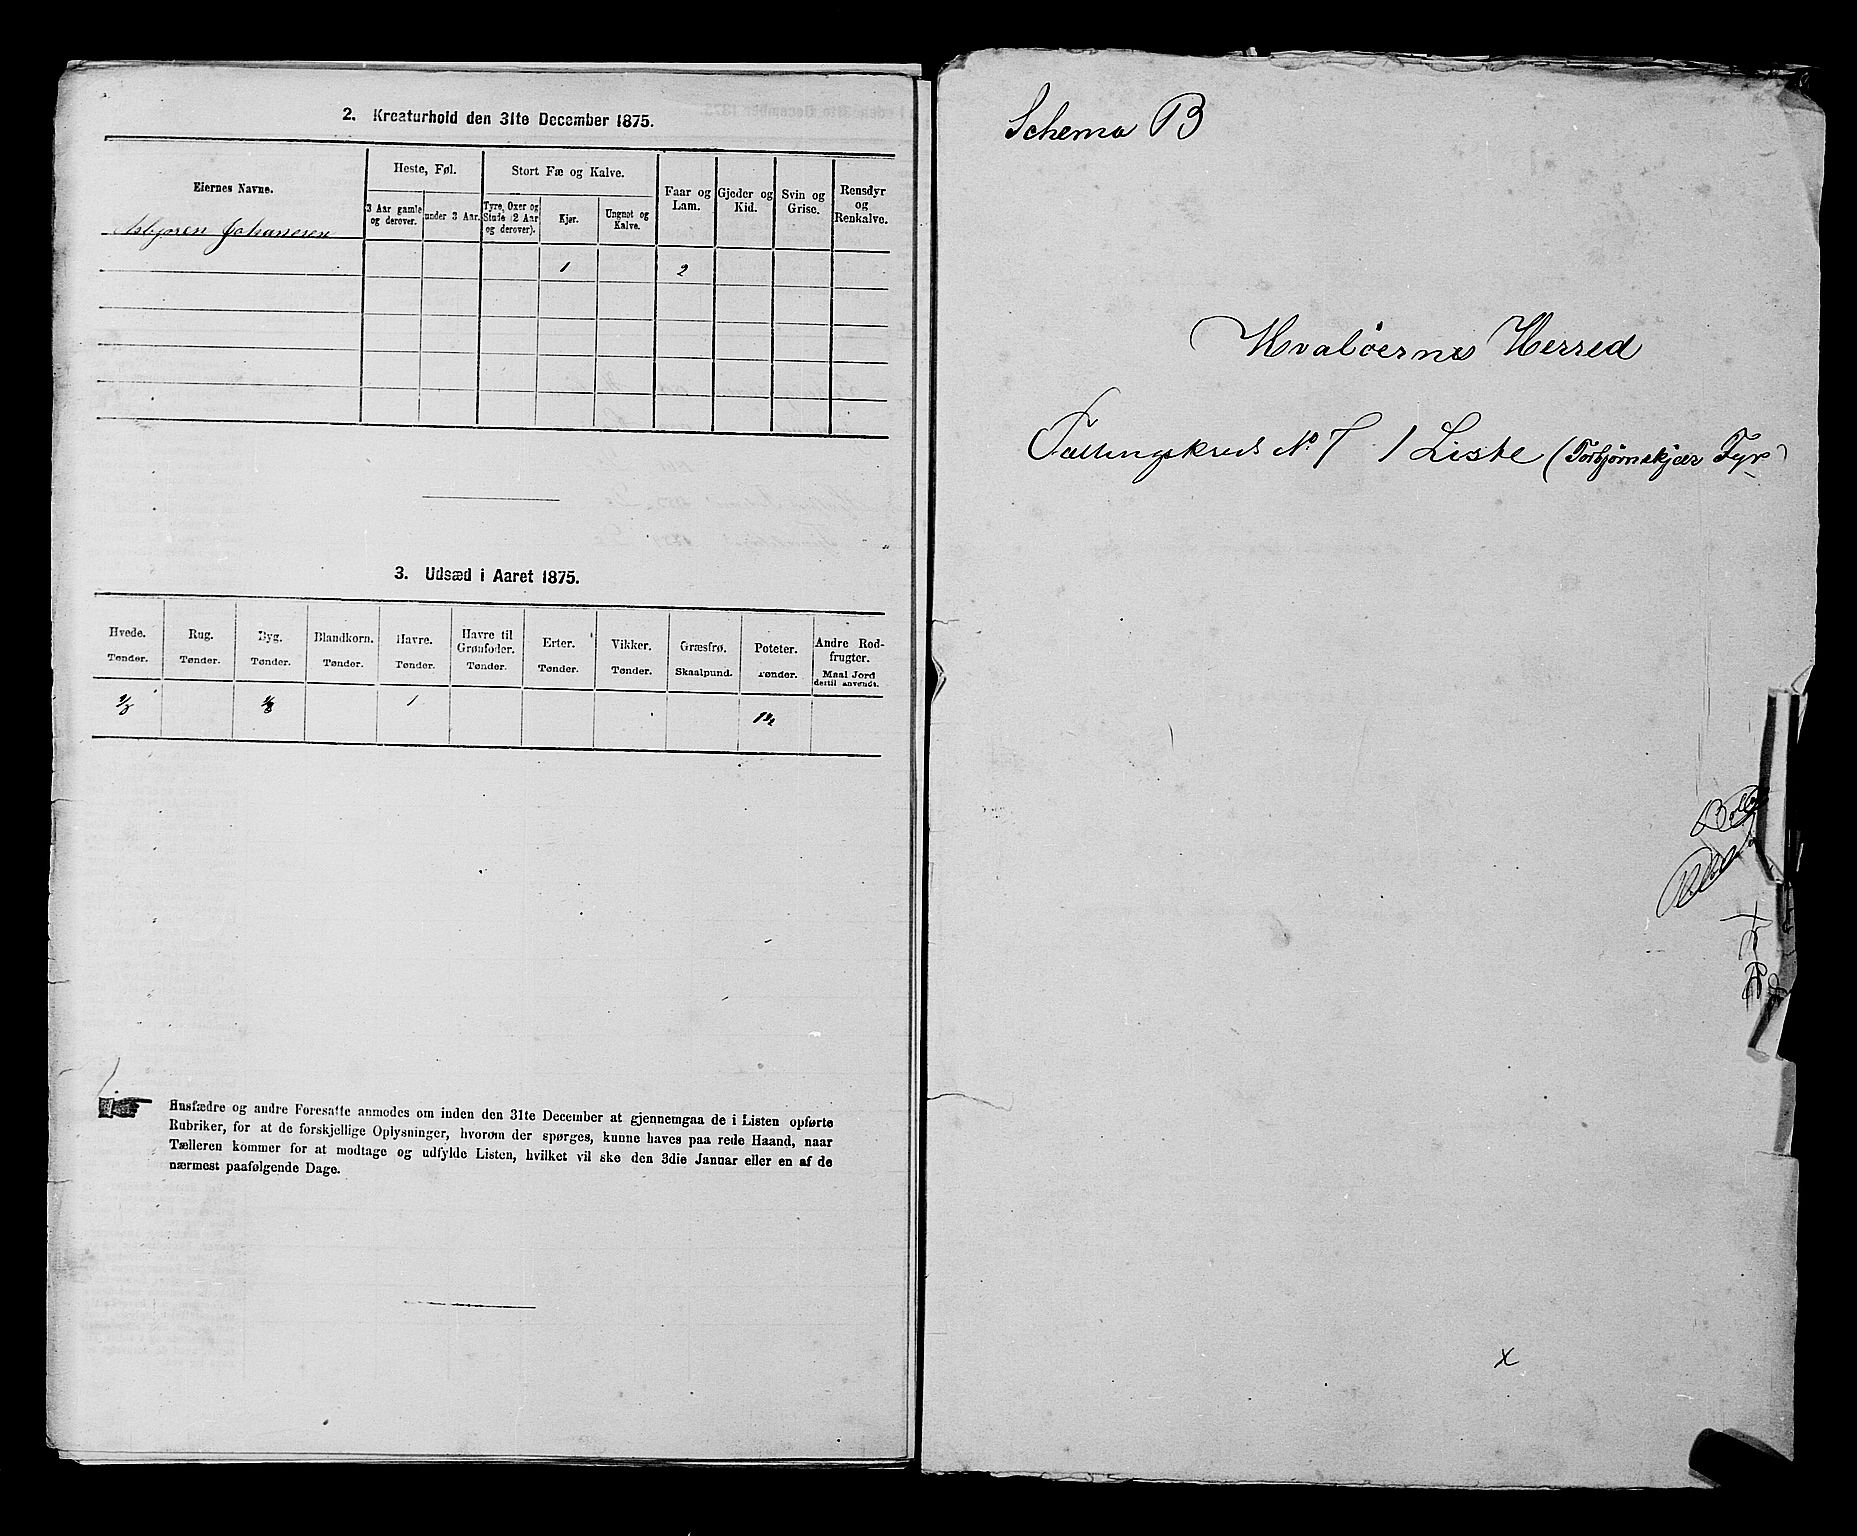 2. Kreaturhold den 31te December 1875.
Eiernes Navne.
Heste, Føl.
3 Aar gamle og derover.
under 3 Aar.
Stort Fæ og Kalve.
Tyre, Oxer og Stude (2 Aar og derover).
Kjør.
Ungnøt og Kalve.
Faar og Lam.
Gjeder og Kid.
Svin og Grise.
Rensdyr og Renkalve.
Asbjøren Johanesen
1 2
3. Udsæd i Aaret 1875.
Hvede. Rug. Byg. Blandkorn. Havre. Havre til Grønfoder. Erter. Vikker. Græsfrø. Poteter. Andre Rodfrugter.
Tønder. Tønder. Tønder. Tønder. Tønder. Tønder. Tønder. Tønder. Skaalpund. Tønder. Maal Jord dertil anvendt.
1
Husfædre og andre Foresatte anmodes om inden den 31te December at gjennemgaa de i Listen opførte
Rubriker, for at de forskjellige Oplysninger, hvorom der spørges, kunne haves paa rede Haand, naar
Tælleren kommer for at modtage og udfylde Listen, hvilket vil ske den 3die Januar eller en af de
nærmest paafølgende Dage.
Schema B
Hvaløernes Herred
Tællingskreds No 7 1 Liste (Torbjørnskjær Fyr)
x